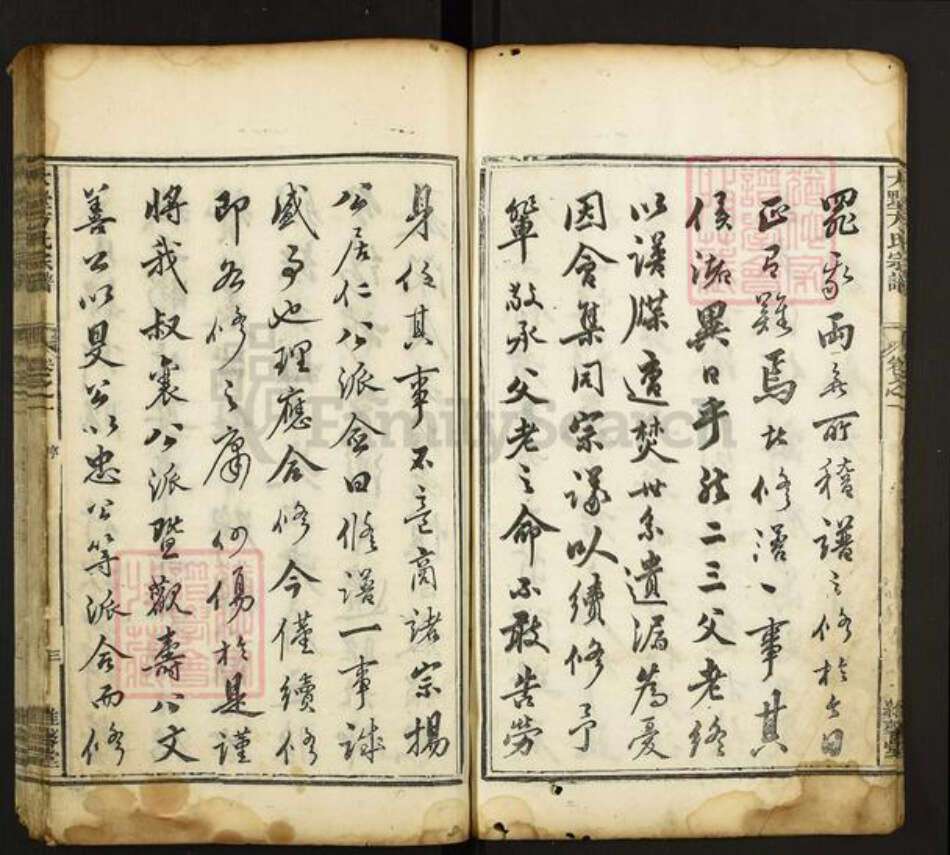 罷兵雨無所稽譜之修於今日
正有難焉故修譜一事其
俟諸異日乎然二三父老終
以譜牒遭焚世系遺漏為憂
因會集同宗議以續修予
輩敬承父老之命不敢告勞
身任其事不意商諸宗揚
公居仁公派僉曰修譜一事誠
盛事也理應合修今僅續修
即各修之庸何傷於是謹
將我叔襄公派暨觀壽公文
善公以旻公以忠公等派合而修
卷之一
序
三
FamilySearch